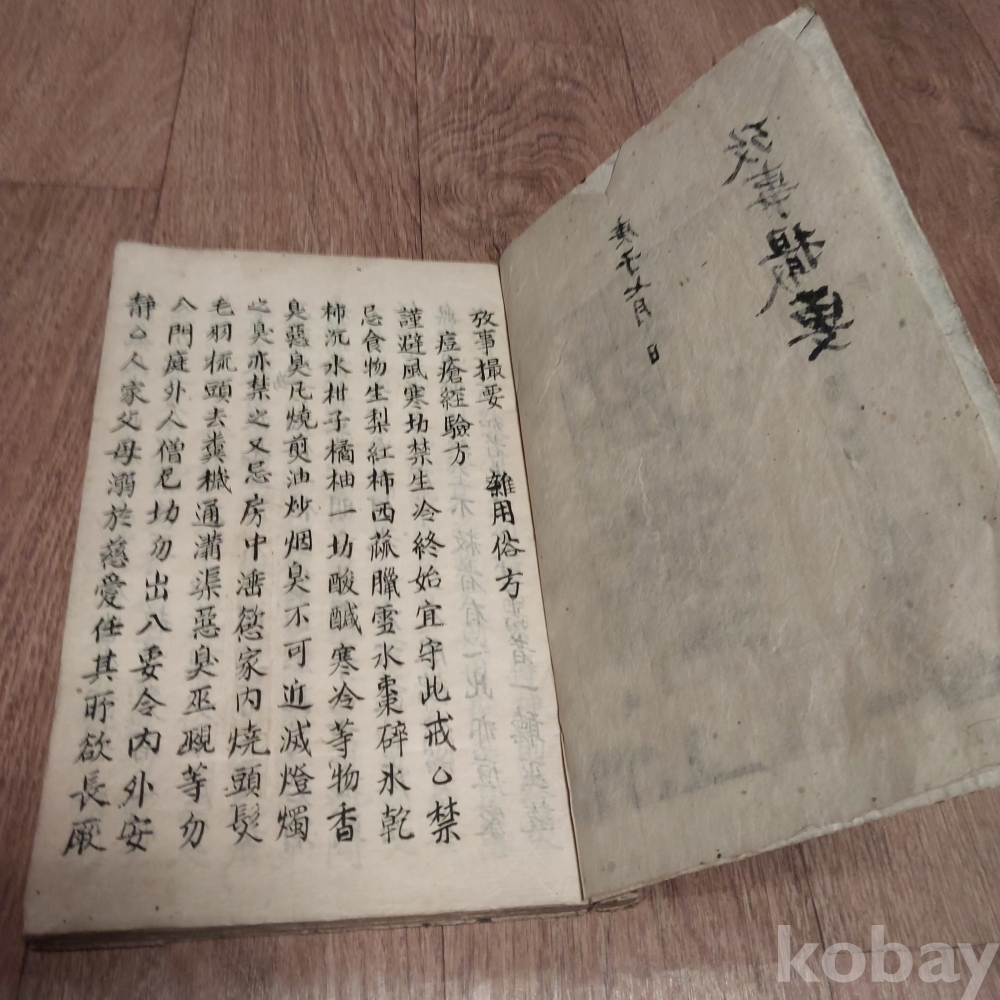 攷事撮要
庚子七月 日
攷事撮要
雜用俗方
痘瘡經驗方
謹避風寒切禁生冷終始宜守此戒〇禁
忌食物生梨紅柿西苽臘雪水棗碎氷乾
柿沉水柑子橘柚一切酸醎寒冷等物香
臭惡臭凡燒煎油炒烟臭不可近滅燈燭
之臭亦禁之又忌房中滛慾家內燒頭髮
毛羽梳頭去糞穢通溝渠惡臭巫覡等勿
入門庭外人僧尼切勿出入要令內外安
靜〇人家父母溺於慈愛任其所欲長厥
kobay